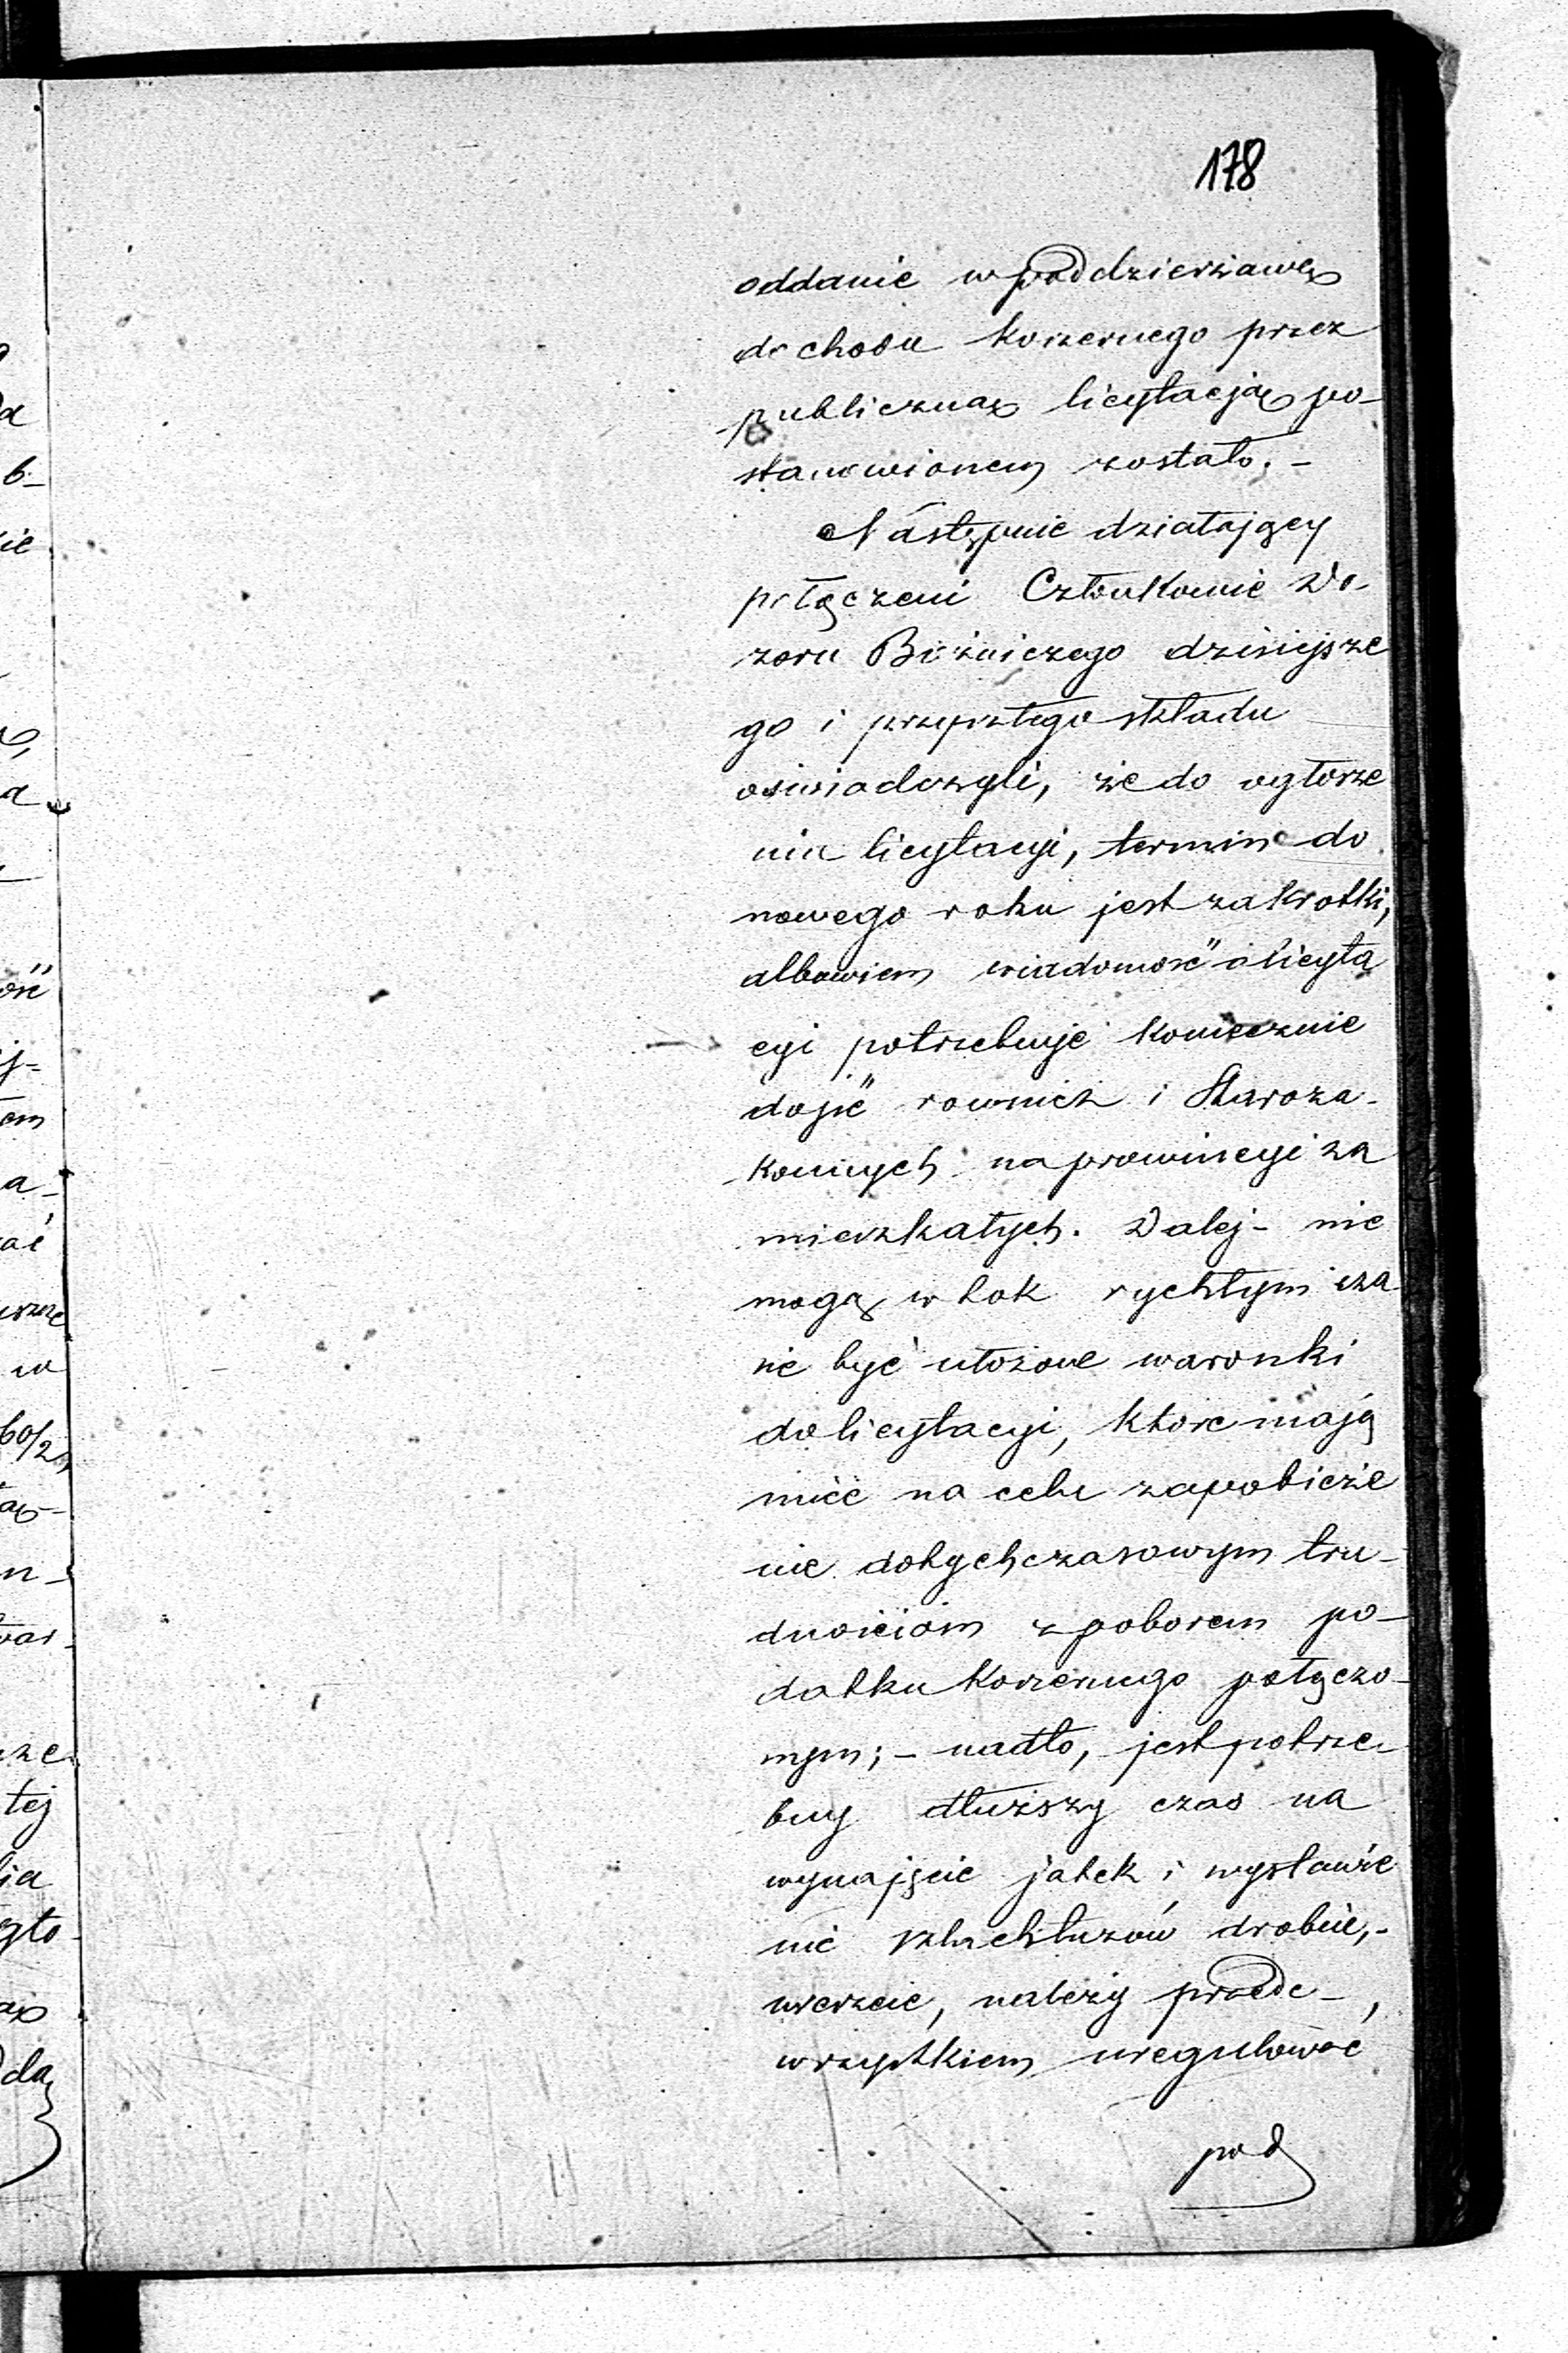 178
oddanie w poddzierżawę
dochodu koszernego przez
publiczną licytacją po-
stanowionem zostało. -
Następnie działający
połączeni Członkowie Do-
zoru Bożniczego dzisiejsze
go i przyszłego składu
oświadczyli, że do ogłosze
nia licytacyi, termin do
nowego roku jest za krotki,
albowiem wiadomość o licyta
cyi potrzebuje koniecznie
dojść rownież i Staroza-
konnych na prowincyi za
mieszkałych. Dalej - nie
mogą w tak rychłym cza
sie być ułożone warunki
do licytacyi, ktore mają
mieć na celu zapobieże
nie dotychczasowym tru-
dnościom z poborem po-
datku koszernego połączo-
nym; - nadto, jest potrze-
bny dłuższy czas na
wynajęcie jatek i wystawie
nie szlachtuzów drobiu, -
wreszcie, należy przede-
wszystkiem uregulować
pod